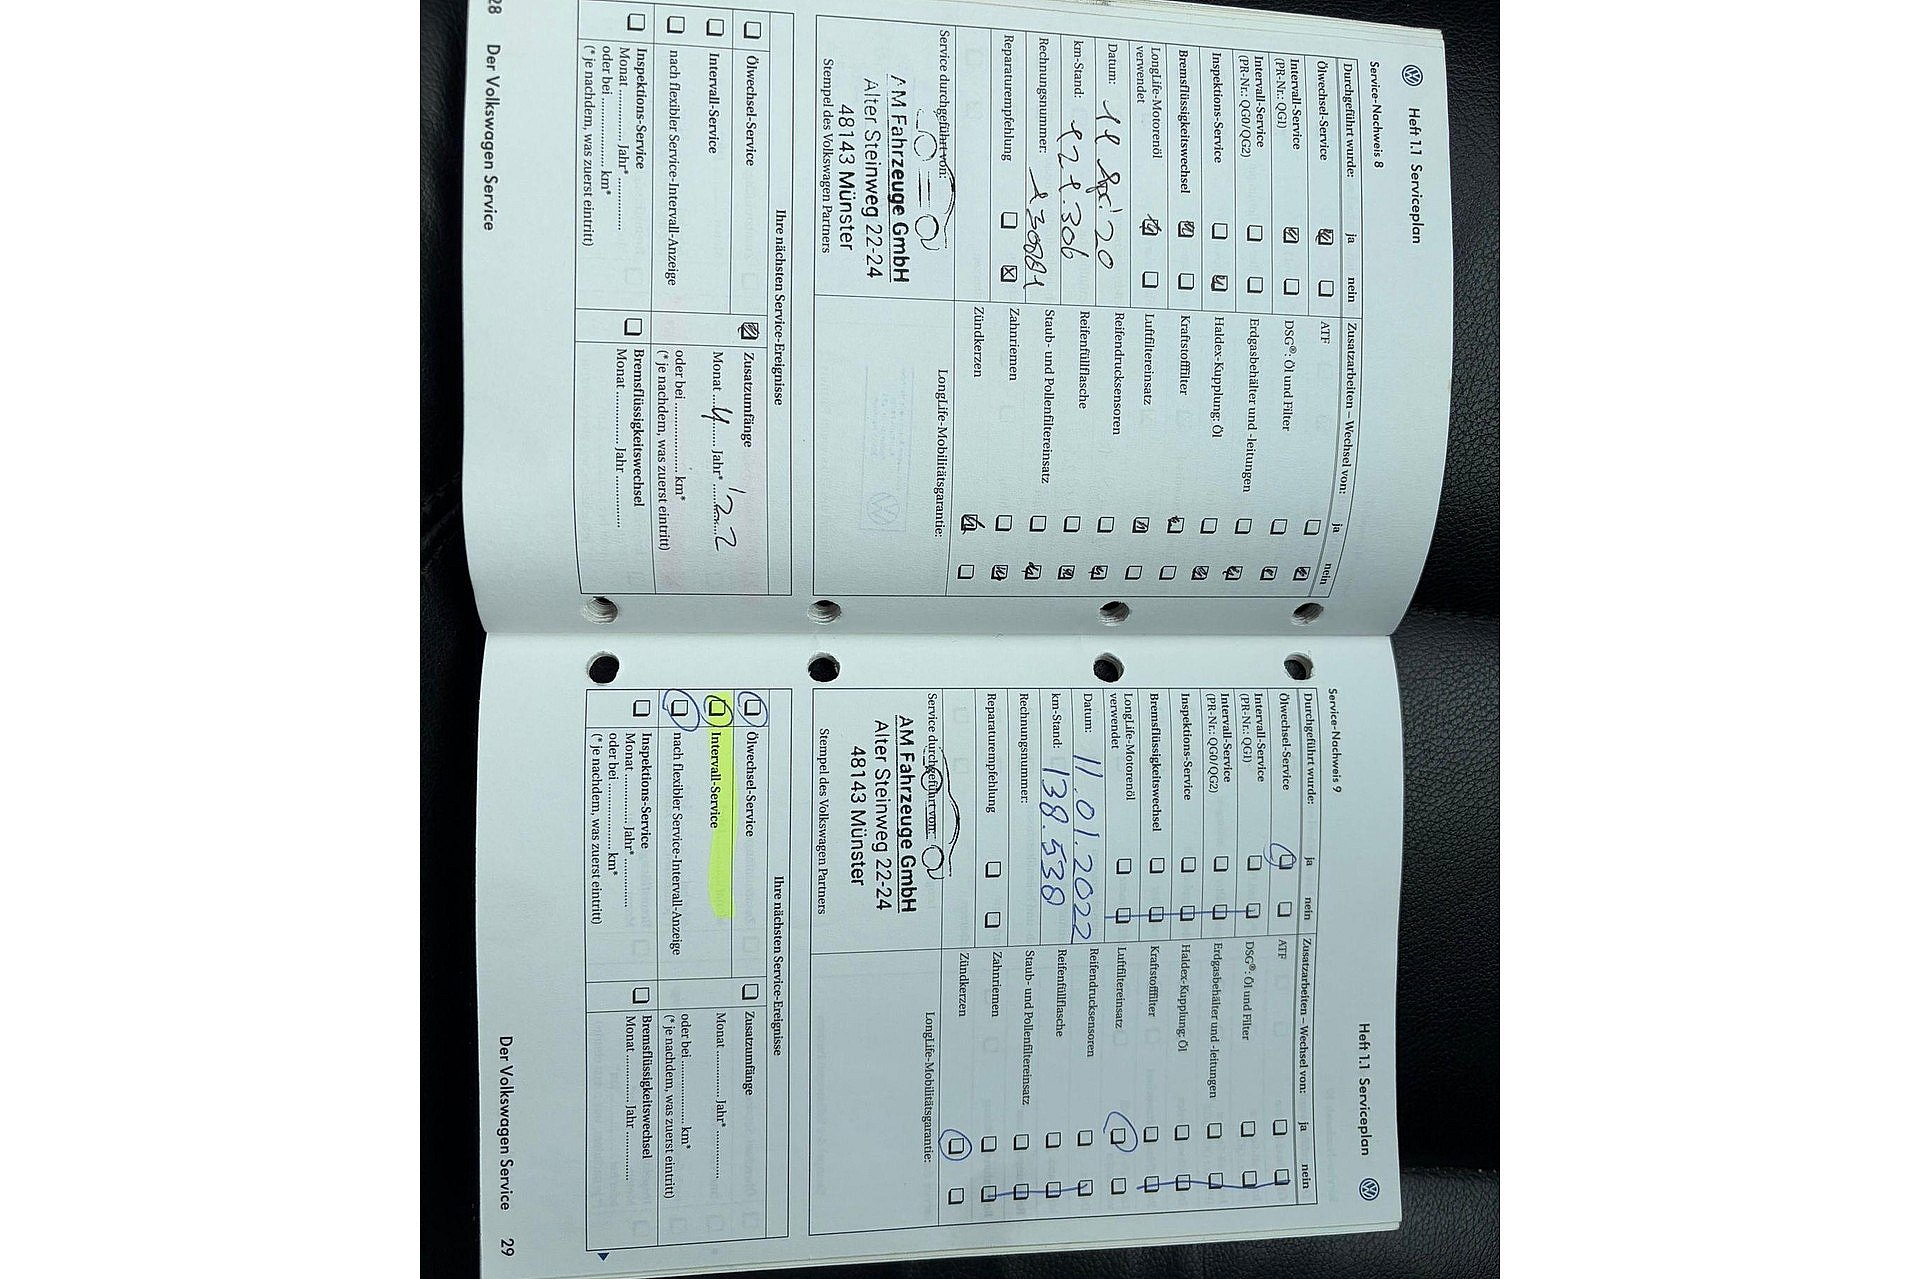 Heft 1.1 Serviceplan
Service-Nachweis 8
Durchgeführt wurde: ja nein
Ölwechsel-Service
Intervall-Service
(PR-Nr.: QG1)
Intervall-Service
(PR-Nr.: QG0/QG2)
Inspektions-Service
Bremsflüssigkeitswechsel
LongLife-Motorenöl
verwendet
Datum:
km-Stand:
Rechnungsnummer:
Reparaturempfehlung
Zusatzarbeiten – Wechsel von: ja nein
ATF
DSG®: Öl und Filter
Erdgasbehälter und -leitungen
Haldex-Kupplung: Öl
Kraftstofffilter
Luftfiltereinsatz
Reifendrucksensoren
Reifenfüllflasche
Staub- und Pollenfiltereinsatz
Zahnriemen
Zündkerzen
Service durchgeführt von:
AM Fahrzeuge GmbH
Alter Steinweg 22-24
48143 Münster
Stempel des Volkswagen Partners
LongLife-Mobilitätsgarantie:
Ihre nächsten Service-Ereignisse
Ölwechsel-Service
Intervall-Service
nach flexibler Service-Intervall-Anzeige
Inspektions-Service
Monat ............ Jahr* ............
oder bei ............ km*
(* je nachdem, was zuerst eintritt)
Zusatzumfänge
Monat ... 4 ... Jahr* ... '22
oder bei ............ km*
(* je nachdem, was zuerst eintritt)
Bremsflüssigkeitswechsel
Monat ............ Jahr ............
28 Der Volkswagen Service
Heft 1.1 Serviceplan
Service-Nachweis 9
Durchgeführt wurde: ja nein
Ölwechsel-Service
Intervall-Service
(PR-Nr.: QG1)
Intervall-Service
(PR-Nr.: QG0/QG2)
Inspektions-Service
Bremsflüssigkeitswechsel
LongLife-Motorenöl
verwendet
Datum: 11.01.2022
km-Stand: 138.538
Rechnungsnummer:
Reparaturempfehlung
Zusatzarbeiten – Wechsel von: ja nein
ATF
DSG®: Öl und Filter
Erdgasbehälter und -leitungen
Haldex-Kupplung: Öl
Kraftstofffilter
Luftfiltereinsatz
Reifendrucksensoren
Reifenfüllflasche
Staub- und Pollenfiltereinsatz
Zahnriemen
Zündkerzen
Service durchgeführt von:
AM Fahrzeuge GmbH
Alter Steinweg 22-24
48143 Münster
Stempel des Volkswagen Partners
LongLife-Mobilitätsgarantie:
Ihre nächsten Service-Ereignisse
Ölwechsel-Service
Intervall-Service
nach flexibler Service-Intervall-Anzeige
Inspektions-Service
Monat ............ Jahr* ............
oder bei ............ km*
(* je nachdem, was zuerst eintritt)
Zusatzumfänge
Monat ............ Jahr* ............
oder bei ............ km*
(* je nachdem, was zuerst eintritt)
Bremsflüssigkeitswechsel
Monat ............ Jahr ............
Der Volkswagen Service 29